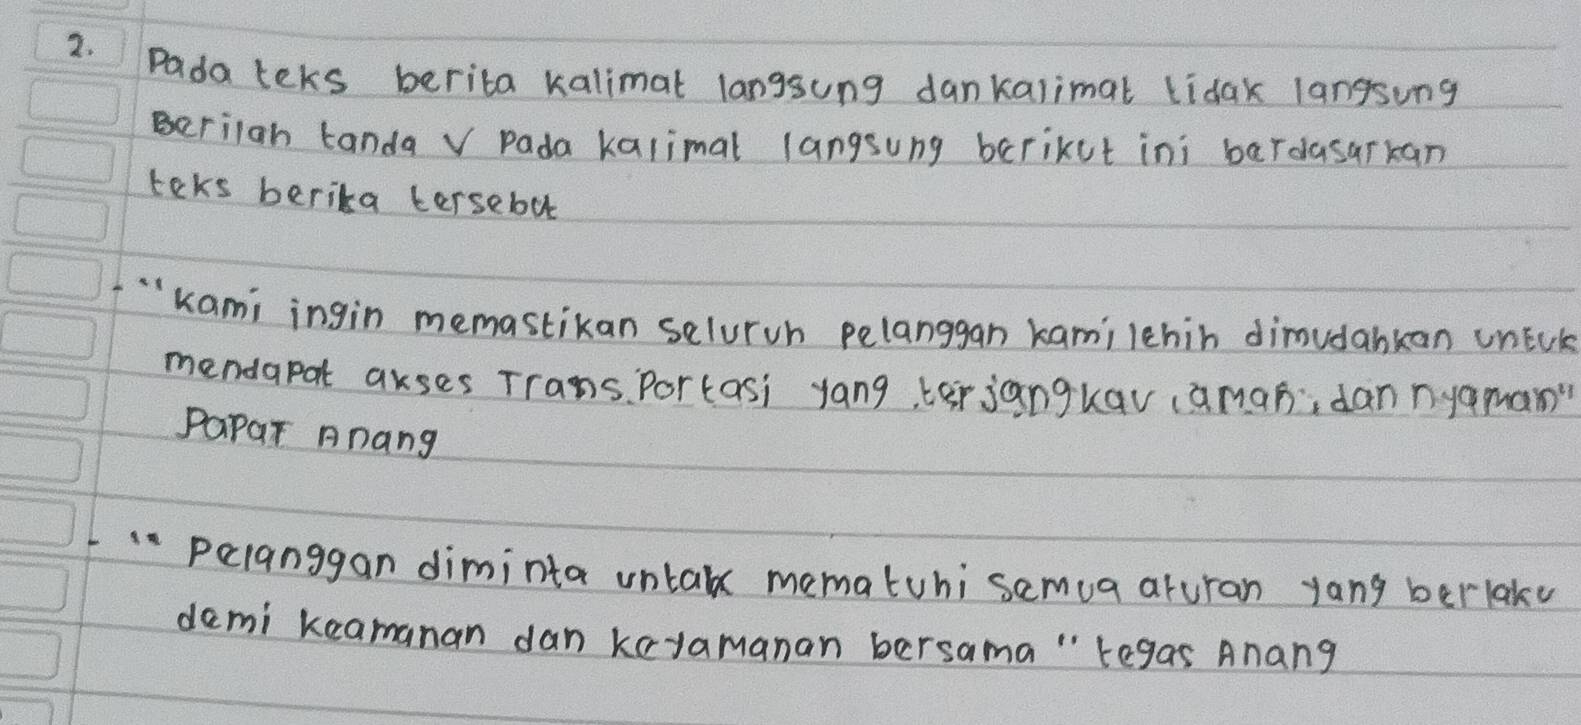 2. Pada teks berita kalimat langsung dan kalimat tidak langsung
Berilah tanda V pada kalimat langsung berikut ini berdasarkan
teks berita tersebut
- "Kami ingin memastikan seluruh pelanggan kami lehih dimudahkan untuk
mendapat akses Trans.portasi yang terjangkau, aman, dan nyaman"
Papar Anang
- "Pelanggan diminta untak mematuhi semua aturan yang berlaku
demi keamanan dan keyamanan bersama" tegas Anang